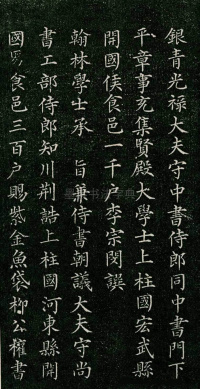 銀青光禄大夫守中書侍郎同中書門下
平章事充集賢殿大學士上柱國宏武縣
開國侯食邑一千户李宗閔譔
翰林學士承 旨兼侍書朝議大夫守尚
書工部侍郎知川荆誥上柱國河東縣開
國男食邑三百户賜紫金魚袋柳公權書